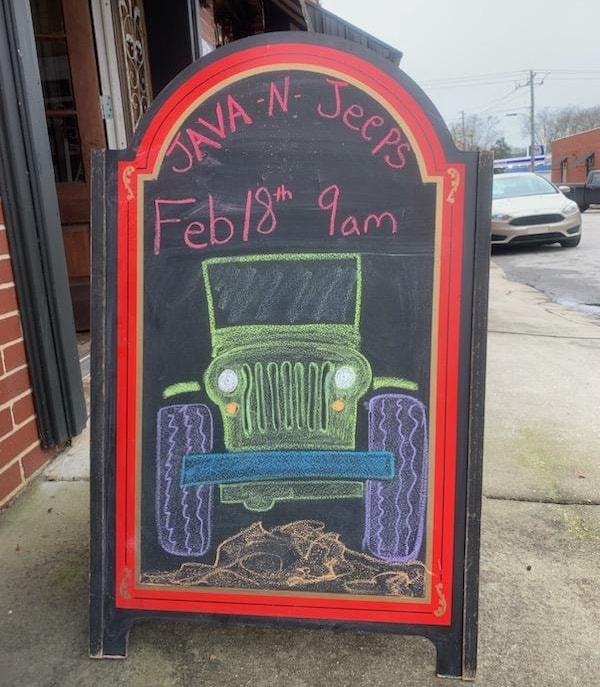 JAVA-N-JeepS
Feb 18th 9am